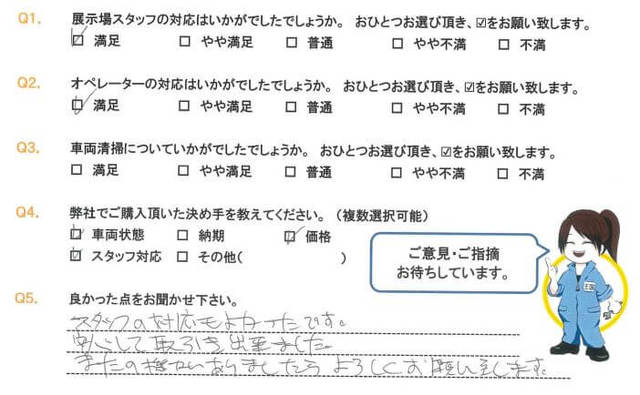 Q1. 展示場スタッフの対応はいかがでしたでしょうか。 おひとつお選び頂き、☑をお願い致します。
☑ 満足 □ やや満足 □ 普通 □ やや不満 □ 不満
Q2. オペレーターの対応はいかがでしたでしょうか。 おひとつお選び頂き、☑をお願い致します。
☑ 満足 □ やや満足 □ 普通 □ やや不満 □ 不満
Q3. 車両清掃についていかがでしたでしょうか。 おひとつお選び頂き、☑をお願い致します。
□ 満足 □ やや満足 □ 普通 □ やや不満 □ 不満
Q4. 弊社でご購入頂いた決め手を教えてください。 (複数選択可能)
☑ 車両状態 □ 納期 ☑ 価格
☑ スタッフ対応 □ その他( )
ご意見・ご指摘
お待ちしています。
Q5. 良かった点をお聞かせ下さい。
スタッフの対応もよかったです。
安心して取引き出来ました。
またの機会がありましたらよろしくお願い致します。